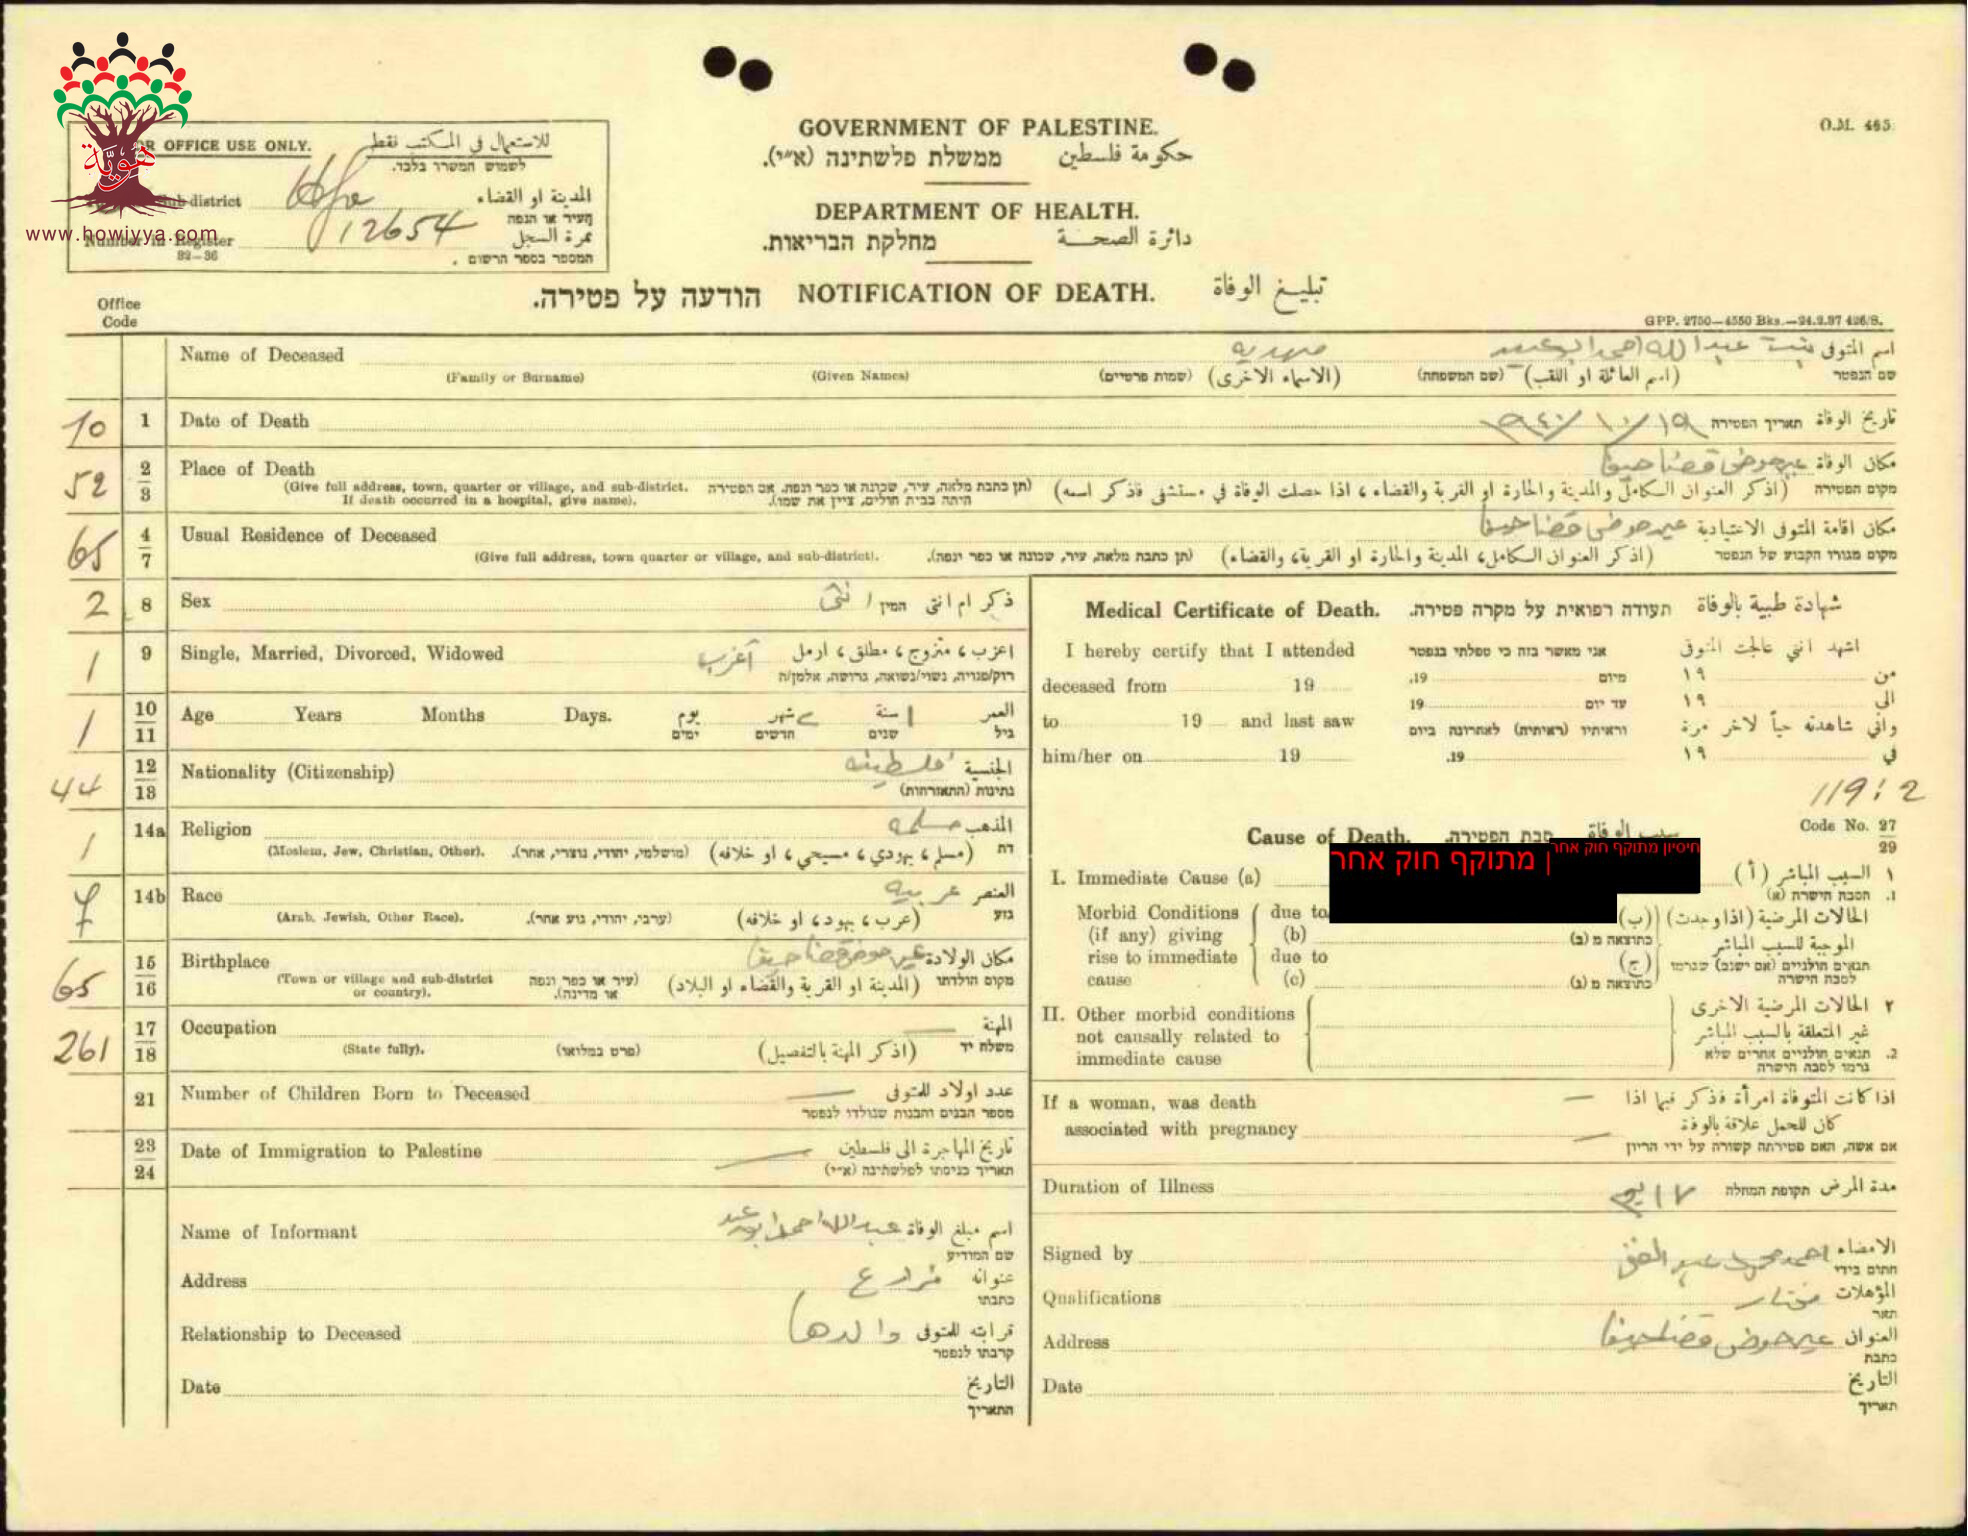 O.M. 465
هويّة
www.howiyya.com
FOR OFFICE USE ONLY. للاستعمال في المكتب فقط
לשמוש המשרד בלבד.
Sub-district Hfa المدينة او القضاء
העיר או הנפה
Number in Register 12654 نمرة السجل
32—36 המספר בספר הרשום.
GOVERNMENT OF PALESTINE.
ממשלת פלשתינה (א״י). حكومة فلسطين
DEPARTMENT OF HEALTH.
מחלקת הבריאות. دائرة الصحة
הודעה על פטירה. NOTIFICATION OF DEATH. تبليغ الوفاة
Office
Code
GPP. 2750—4550 Bks.—24.2.37 426/S.
Name of Deceased مهديه بنت عبدالله احمد ابو عيد اسم المتوفى
(Family or Surname) (Given Names) (שמות פרטיים) (الاسماء الاخرى) (שם המשפחה) (اسم العائلة او اللقب) שם הנפטר
10 1 Date of Death ١٩/١٠/٩٤٠ תאריך הפטירה تاريخ الوفاة
52 2 3 Place of Death عين حوض قضا حيفا مكان الوفاة
(Give full address, town, quarter or village, and sub-district. (תן כתבת מלאה, עיר, שכונה או כפר ונפה. אם הפטירה (اذكر العنوان الكامل والمدينة والحارة او القرية والقضاء ، اذا حصلت الوفاة في مستشفى فاذكر اسمه) מקום הפטירה
If death occurred in a hospital, give name). היתה בבית חולים, ציין את שמו).
65 4 7 Usual Residence of Deceased عين حوض قضا حيفا مكان اقامة المتوفى الاعتيادية
(Give full address, town quarter or village, and sub-district). (תן כתבת מלאה, עיר, שכונה או כפר ונפה). (اذكر العنوان الكامل، المدينة والحارة او القرية، والقضاء) מקום מגורו הקבוע של הנפטר
2 8 Sex انثى המין ذكر ام انثى
1 9 Single, Married, Divorced, Widowed أعزب اعزب ، متزوج ، مطلق ، ارمل
רוק/פנויה, נשוי/נשואה, גרושה, אלמן/ה
1 10 11 Age Years Months Days. يوم شهر ١ سنة العمر
ימים חדשים שנים גיל
44 12 13 Nationality (Citizenship) فلسطينيه الجنسية
נתינות (התאזרחות)
1 14a Religion مسلمه المذهب
(Moslem, Jew, Christian, Other). (מושלמי, יהודי, נוצרי, אחר). (مسلم ، يهودي ، مسيحي ، او خلافه) דת
7 14b Race عربيه العنصر
(Arab, Jewish, Other Race). (ערבי, יהודי, גזע אחר). (عرب ، يهود ، او خلافه) גזע
65 15 16 Birthplace عين حوض قضا حيفا مكان الولادة
(Town or village and sub-district (עיר או כפר ונפה (المدينة او القرية والقضاء او البلاد) מקום הולדתו
or country). או מדינה).
261 17 18 Occupation — المهنة
(State fully). (פרט במלואו) (اذكر المهنة بالتفصيل) משלח יד
21 Number of Children Born to Deceased — عدد اولاد للمتوفى
מספר הבנים והבנות שנולדו לנפטר
23 24 Date of Immigration to Palestine — تاريخ المهاجرة الى فلسطين
תאריך כניסתו לפלשתינה (א״י)
Name of Informant عبدالله احمد ابو عيد اسم مبلغ الوفاة
שם המודיע
Address مزارع عنوانه
כתבתו
Relationship to Deceased والدها قرابته للمتوفى
קרבתו לנפטר
Date التاريخ
התאריך
Medical Certificate of Death. תעודה רפואית על מקרה פטירה. شهادة طبية بالوفاة
I hereby certify that I attended אני מאשר בזה כי טפלתי בנפטר اشهد انني عالجت المتوفى
deceased from 19 19. מיום ١٩ من
to 19 and last saw 19 עד יום ١٩ الى
וראיתיו (ראיתיה) לאחרונה ביום واني شاهدته حياً لآخر مرة
him/her on 19 19. ١٩ في
119:2
Cause of Death. סבת הפטירה. سبب الوفاة Code No. 27 29
חיסיון מתוקף חוק אחר
ן מתוקף חוק אחר
I. Immediate Cause (a) ١ السبب المباشر (أ)
1. הסבה הישרה (א)
Morbid Conditions due to الحالات المرضية (اذا وجدت) (ب)
(if any) giving (b) כתוצאה מ (ב) الموجبة للسبب المباشر
rise to immediate due to (ج) תנאים חולניים (אם ישנם) שגרמו
cause (c) כתוצאה מ (ג) לסבה הישרה
II. Other morbid conditions ٢ الحالات المرضية الاخرى
not causally related to غير المتعلقة بالسبب المباشر
immediate cause 2. תנאים חולניים אחרים שלא
גרמו לסבה הישרה
If a woman, was death — اذا كانت المتوفاة امرأة فذكر فيما اذا
associated with pregnancy — كان للحمل علاقة بالوفاة
אם אשה, האם פטירתה קשורה על ידי הריון
Duration of Illness ١٧ يوم תקופת המחלה مدة المرض
Signed by احمد محمود عبد الغني الامضاء
חתום בידי
Qualifications مختار المؤهلات
תאר
Address عين حوض قضا حيفا العنوان
כתבת
Date التاريخ
תאריך